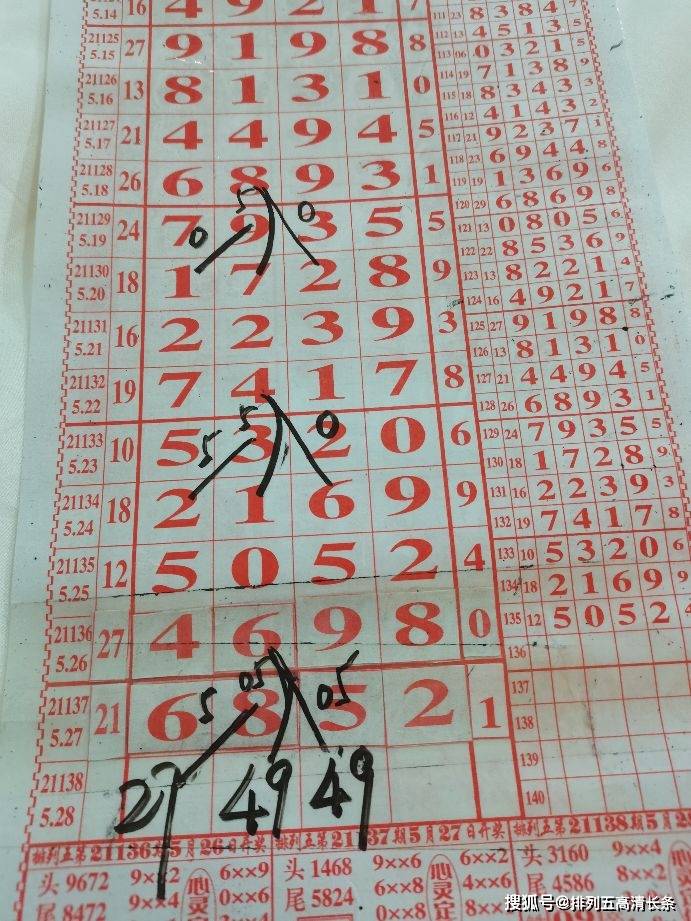 5.14 16 4 9 2 1 7
21125 5.15 27 9 1 9 8 8
21126 5.16 13 8 1 3 1 0
21127 5.17 21 4 4 9 4 5
21128 5.18 26 6 8 9 3 1
5 0
21129 5.19 24 7 9 3 5 5
0
21130 5.20 18 1 7 2 8 9
21131 5.21 16 2 2 3 9 3
21132 5.22 19 7 4 1 7 8
5 0
21133 5.23 10 5 3 2 0 6
5
21134 5.24 18 2 1 6 9 9
21135 5.25 12 5 0 5 2 4
21136 5.26 27 4 6 9 8 0
05 05
21137 5.27 21 6 8 5 2 1
5
21138 5.28
27 49 49
111 23 8 3 8 4 7
112 13 4 5 1 3 5
113 06 0 3 2 1 5
114 19 7 1 3 8 9
115 18 8 3 4 3 3
116 12 4 1 4 3 2
117 21 9 2 3 7 1
118 23 6 9 4 4 8
119 19 1 3 6 9 6
120 29 6 8 6 9 8
121 13 0 8 0 5 6
122 22 8 5 3 6 9
123 13 8 2 2 1 4
124 16 4 9 2 1 7
125 27 9 1 9 8 8
126 13 8 1 3 1 0
127 21 4 4 9 4 5
128 26 6 8 9 3 1
129 24 7 9 3 5 5
130 18 1 7 2 8 9
131 16 2 2 3 9 3
132 19 7 4 1 7 8
133 10 5 3 2 0 6
134 18 2 1 6 9 9
135 12 5 0 5 2 4
136
137
138
139
140
排列五第21136期5月26日开奖 排列五第21137期5月27日开奖 排列五第21138期5月28
头 9672 6××9 头 1468 9××6 6××2 头 3160 9××4
尾 8472 9××4 0××6 尾 5824 6××8 4××6 尾 4586 8××2
心灵 心灵 心灵
搜狐号@排列五高清长条